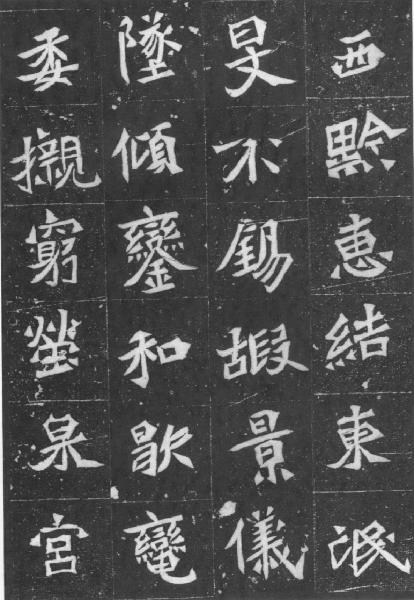 西黔惠結東氓
旻不錫嘏景儀
墜傾鑾和歇
委櫬窮塋泉宮